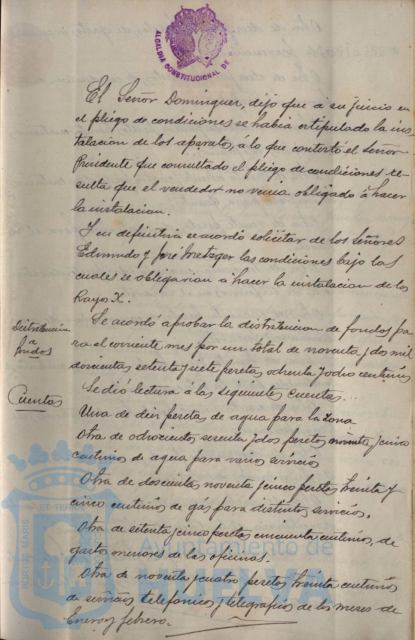 ALCALDIA CONSTITUCIONAL DE
El Señor Dominguez, dijo que á su juicio en
el pliego de condiciones se habia estipulado la ins-
talacion de los aparatos, á lo que contestó el Señor
Presidente que consultado el pliego de condiciones re-
sulta que el vendedor no venia obligado á hacer
la instalacion.
Y en definitiva se acordó solicitar de los Señores
Edmundo y José Metzger las condiciones bajo las
cuales se obligarian á hacer la instalacion de los
Rayos X.
Distribucion
de
fondos
Se acordó aprobar la distribucion de fondos pa-
ra el corriente mes por un total de noventa y dos mil
doscientas setenta y siete pesetas, ochenta y ocho centimos
Cuentas
Se dió lectura á las siguientes cuentas...
Una de diez pesetas de agua para la zona
Otra de ochocientas sesenta y dos pesetas noventa y cinco
centimos de agua para varios servicios
Otra de doscientas noventa y cinco pesetas treinta y
cinco centimos de gás para distintos servicios.
Otra de setenta y cinco pesetas cincuenta centimos, de
gastos menores de las oficinas.
Otra de noventa y cuatro pesetas treinta centimos
de servicios telefonico y telegrafico de los meses de
Enero y febrero.
Ayuntamiento de
HUELVA